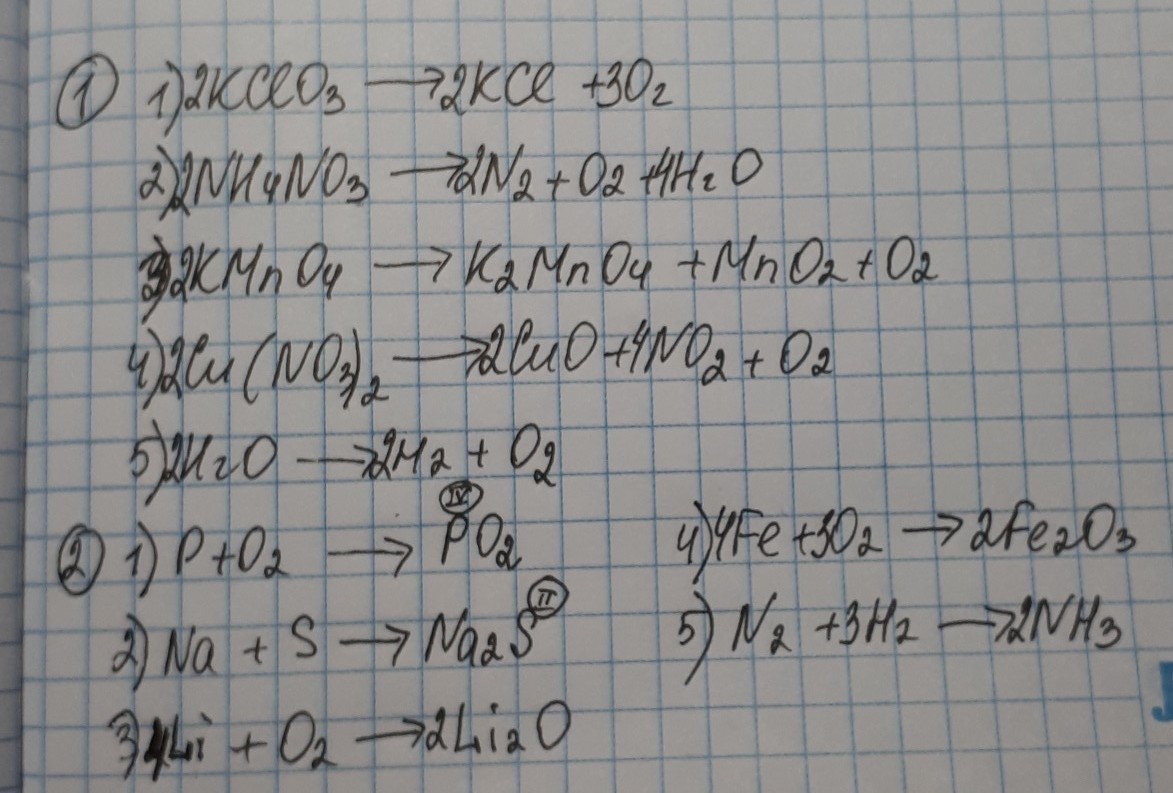 ① 1) 2KClO3 → 2KCl + 3O2
2) 2NH4NO3 → 2N2 + O2 + 4H2O
3) 2KMnO4 → K2MnO4 + MnO2 + O2
4) 2Cu(NO3)2 → 2CuO + 4NO2 + O2
5) 2H2O → 2H2 + O2
② 1) P + O2 → P(IV)O2
2) Na + S → Na2S(II)
3) 4Li + O2 → 2Li2O
4) 4Fe + 3O2 → 2Fe2O3
5) N2 + 3H2 → 2NH3